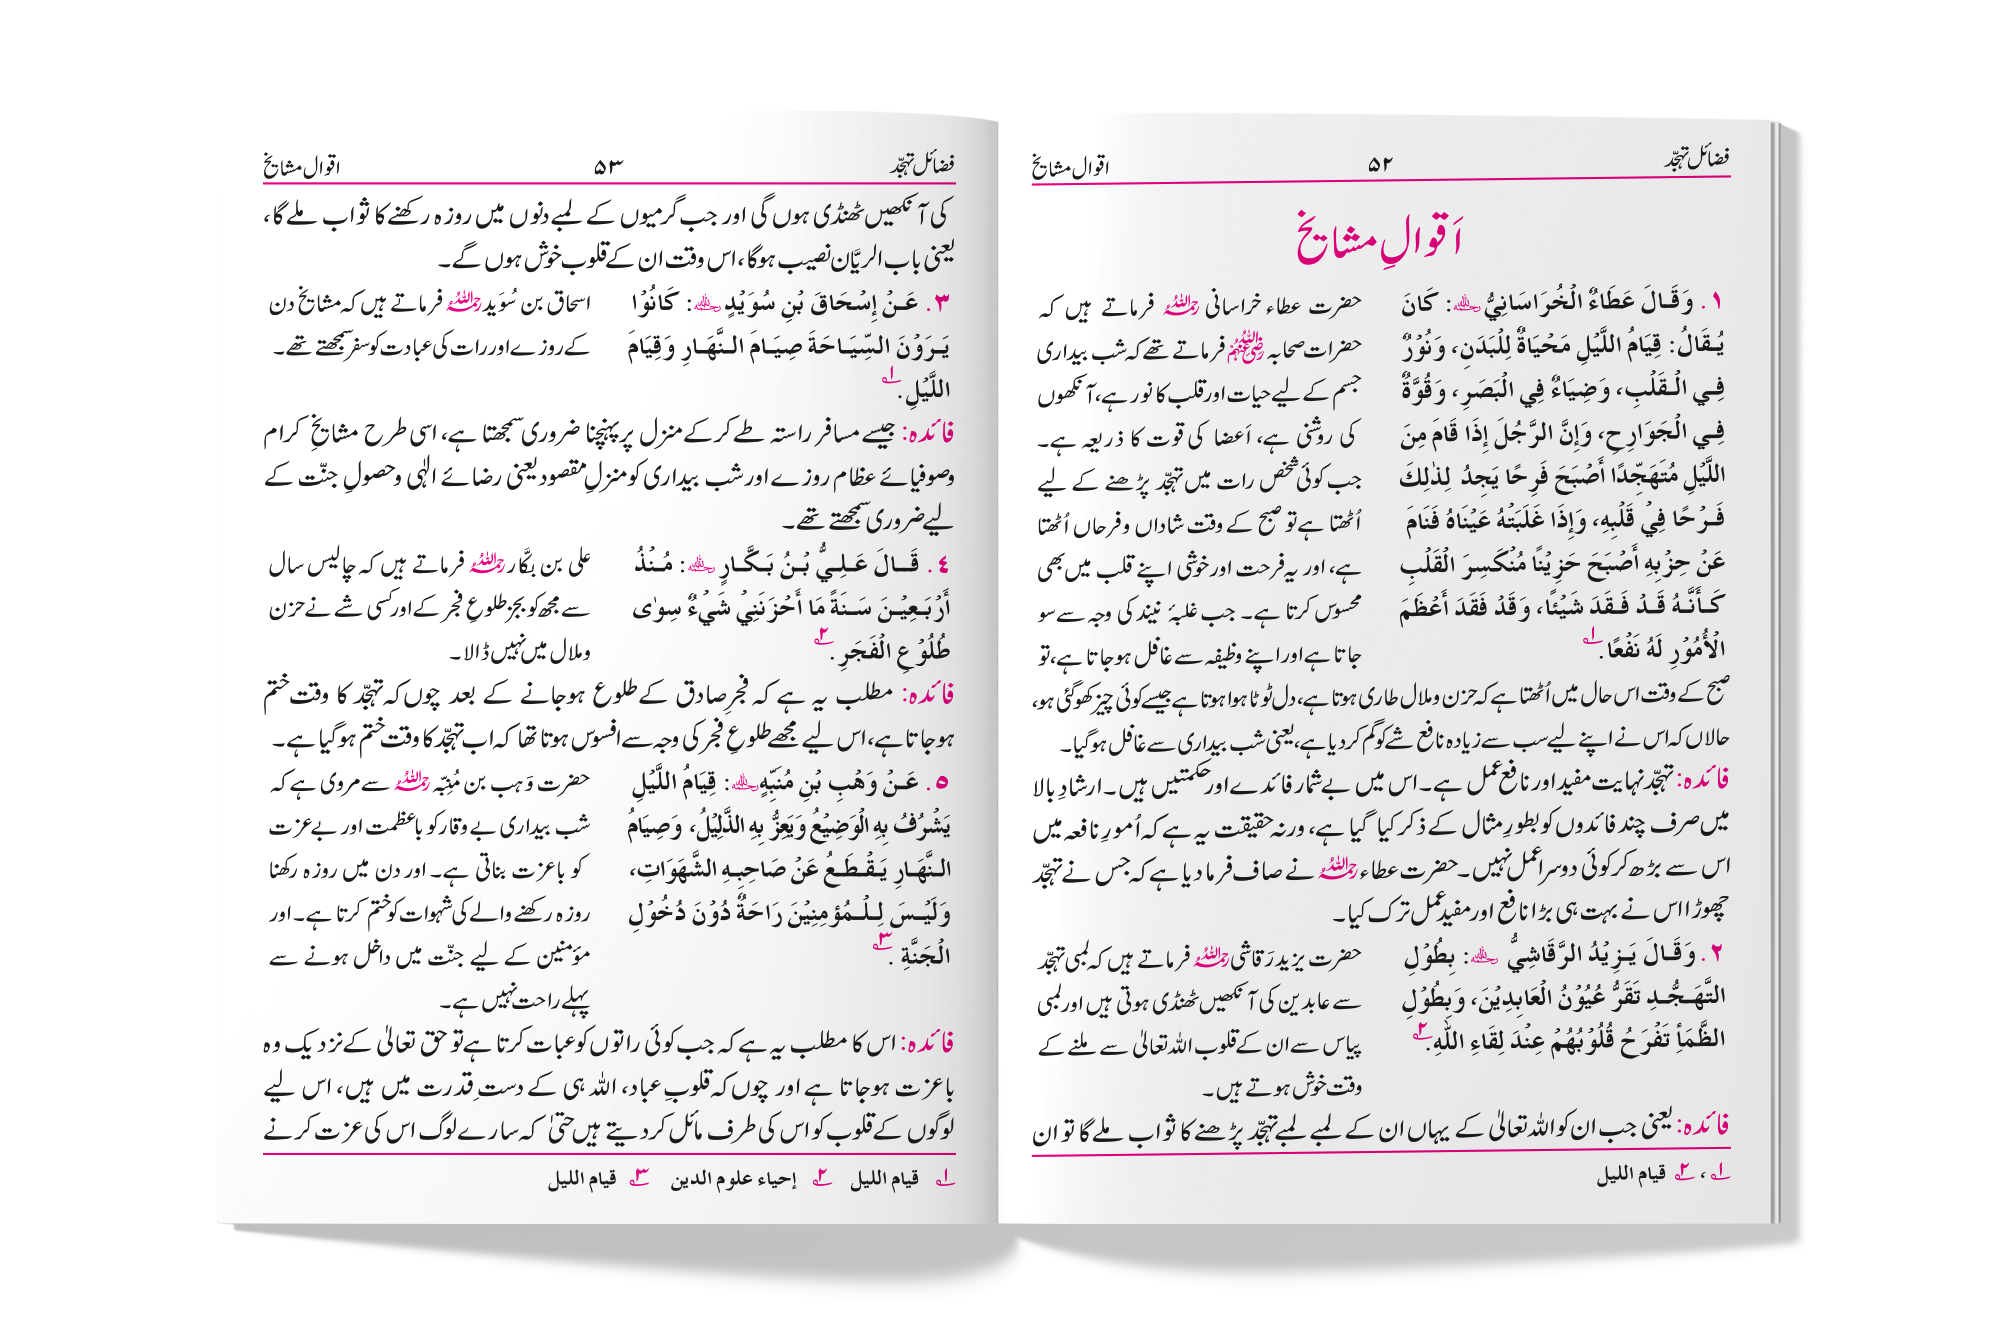 فضائل تہجّد ۵۲ اقوال مشایخ
اَقوالِ مشایخ
۱. وَقَالَ عَطَاءٌ الْخُرَاسَانِيُّ ؒ: كَانَ
يُقَالُ: قِيَامُ اللَّيْلِ مَحْيَاةٌ لِلْبَدَنِ، وَنُوْرٌ
فِي الْقَلْبِ، وَضِيَاءٌ فِي الْبَصَرِ، وَقُوَّةٌ
فِي الْجَوَارِحِ، وَإِنَّ الرَّجُلَ إِذَا قَامَ مِنَ
اللَّيْلِ مُتَهَجِّدًا أَصْبَحَ فَرِحًا يَجِدُ لِذٰلِكَ
فَرْحًا فِيْ قَلْبِهِ، وَإِذَا غَلَبَتْهُ عَيْنَاهُ فَنَامَ
عَنْ حِزْبِهِ أَصْبَحَ حَزِيْنًا مُنْكَسِرَ الْقَلْبِ
كَأَنَّهُ قَدْ فَقَدَ شَيْئًا، وَقَدْ فَقَدَ أَعْظَمَ
الْأُمُوْرِ لَهُ نَفْعًا.؂۱
حضرت عطاء خراسانی رحمہ اللہ فرماتے ہیں کہ
حضرات صحابہ رضی اللہ عنہم فرماتے تھے کہ شب بیداری
جسم کے لیے حیات اور قلب کا نور ہے، آنکھوں
کی روشنی ہے، اَعضا کی قوت کا ذریعہ ہے۔
جب کوئی شخص رات میں تہجّد پڑھنے کے لیے
اُٹھتا ہے تو صبح کے وقت شاداں و فرحاں اُٹھتا
ہے، اور یہ فرحت اور خوشی اپنے قلب میں بھی
محسوس کرتا ہے۔ جب غلبۂ نیند کی وجہ سے سو
جاتا ہے اور اپنے وظیفہ سے غافل ہوجاتا ہے، تو
صبح کے وقت اس حال میں اُٹھتا ہے کہ حزن و ملال طاری ہوتا ہے، دل ٹوٹا ہوا ہوتا ہے جیسے کوئی چیز کھوگئی ہو،
حالاں کہ اس نے اپنے لیے سب سے زیادہ نافع شے کو گم کردیا ہے، یعنی شب بیداری سے غافل ہوگیا۔
فائدہ: تہجّد نہایت مفید اور نافع عمل ہے۔ اس میں بے شمار فائدے اور حکمتیں ہیں۔ ارشادِ بالا
میں صرف چند فائدوں کو بطورِ مثال کے ذکر کیا گیا ہے، ورنہ حقیقت یہ ہے کہ اُمورِ نافعہ میں
اس سے بڑھ کر کوئی دوسرا عمل نہیں۔ حضرت عطاء رحمہ اللہ نے صاف فرما دیا ہے کہ جس نے تہجّد
چھوڑا اس نے بہت ہی بڑا نافع اور مفید عمل ترک کیا۔
۲. وَقَالَ يَزِيْدُ الرَّقَاشِيُّ ؒ: بِطُوْلِ
التَّهَجُّدِ تَقَرُّ عُيُوْنُ الْعَابِدِيْنَ، وَبِطُوْلِ
الظَّمَأِ تَفْرَحُ قُلُوْبُهُمْ عِنْدَ لِقَاءِ اللهِ.؂۲
حضرت یزید رَقاشی رحمہ اللہ فرماتے ہیں کہ لمبی تہجّد
سے عابدین کی آنکھیں ٹھنڈی ہوتی ہیں اور لمبی
پیاس سے ان کے قلوب اللہ تعالیٰ سے ملنے کے
وقت خوش ہوتے ہیں۔
فائدہ: یعنی جب ان کو اللہ تعالیٰ کے یہاں ان کے لمبے لمبے تہجّد پڑھنے کا ثواب ملے گا تو ان
؂۱، ؂۲ قیام اللیل
فضائل تہجّد ۵۳ اقوال مشایخ
کی آنکھیں ٹھنڈی ہوں گی اور جب گرمیوں کے لمبے دنوں میں روزہ رکھنے کا ثواب ملے گا،
یعنی باب الریّان نصیب ہوگا، اس وقت ان کے قلوب خوش ہوں گے۔
۳. عَنْ إِسْحَاقَ بْنِ سُوَيْدٍ ؒ: كَانُوْا
يَرَوْنَ السِّيَاحَةَ صِيَامَ النَّهَارِ وَقِيَامَ
اللَّيْلِ.؂۱
اسحاق بن سُوَید رحمہ اللہ فرماتے ہیں کہ مشایخ دن
کے روزے اور رات کی عبادت کو سفر سمجھتے تھے۔
فائدہ: جیسے مسافر راستہ طے کرکے منزل پر پہنچنا ضروری سمجھتا ہے، اسی طرح مشایخِ کرام
و صوفیائے عظام روزے اور شب بیداری کو منزلِ مقصود یعنی رضائے الٰہی و حصولِ جنّت کے
لیے ضروری سمجھتے تھے۔
٤. قَالَ عَلِيُّ بْنُ بَكَّارٍ ؒ: مُنْذُ
أَرْبَعِيْنَ سَنَةً مَا أَحْزَنَنِيْ شَيْءٌ سِوٰى
طُلُوْعِ الْفَجَرِ.؂۲
علی بن بکَّار رحمہ اللہ فرماتے ہیں کہ چالیس سال
سے مجھ کو بجز طلوعِ فجر کے اور کسی شے نے حزن
و ملال میں نہیں ڈالا۔
فائدہ: مطلب یہ ہے کہ فجرِ صادق کے طلوع ہوجانے کے بعد چوں کہ تہجّد کا وقت ختم
ہوجاتا ہے، اس لیے مجھے طلوعِ فجر کی وجہ سے افسوس ہوتا تھا کہ اب تہجّد کا وقت ختم ہوگیا ہے۔
٥. عَنْ وَهْبِ بْنِ مُنَبِّهٍ ؒ: قِيَامُ اللَّيْلِ
يَشْرُفُ بِهِ الْوَضِيْعُ وَيَعِزُّ بِهِ الذَّلِيْلُ، وَصِيَامُ
النَّهَارِ يَقْطَعُ عَنْ صَاحِبِهِ الشَّهَوَاتِ،
وَلَيْسَ لِلْمُؤْمِنِيْنَ رَاحَةٌ دُوْنَ دُخُوْلِ
الْجَنَّةِ.؂۳
حضرت وَہب بن مُنبِّہ رحمہ اللہ سے مروی ہے کہ
شب بیداری بے وقار کو باعظمت اور بے عزت
کو باعزت بناتی ہے۔ اور دن میں روزہ رکھنا
روزہ رکھنے والے کی شہوات کو ختم کرتا ہے۔ اور
مؤمنین کے لیے جنّت میں داخل ہونے سے
پہلے راحت نہیں ہے۔
فائدہ: اس کا مطلب یہ ہے کہ جب کوئی راتوں کو عبات کرتا ہے تو حق تعالیٰ کے نزدیک وہ
باعزت ہوجاتا ہے اور چوں کہ قلوبِ عباد، اللہ ہی کے دستِ قدرت میں ہیں، اس لیے
لوگوں کے قلوب کو اس کی طرف مائل کردیتے ہیں حتیٰ کہ سارے لوگ اس کی عزت کرنے
؂۱ قیام اللیل ؂۲ إحیاء علوم الدین ؂۳ قیام اللیل